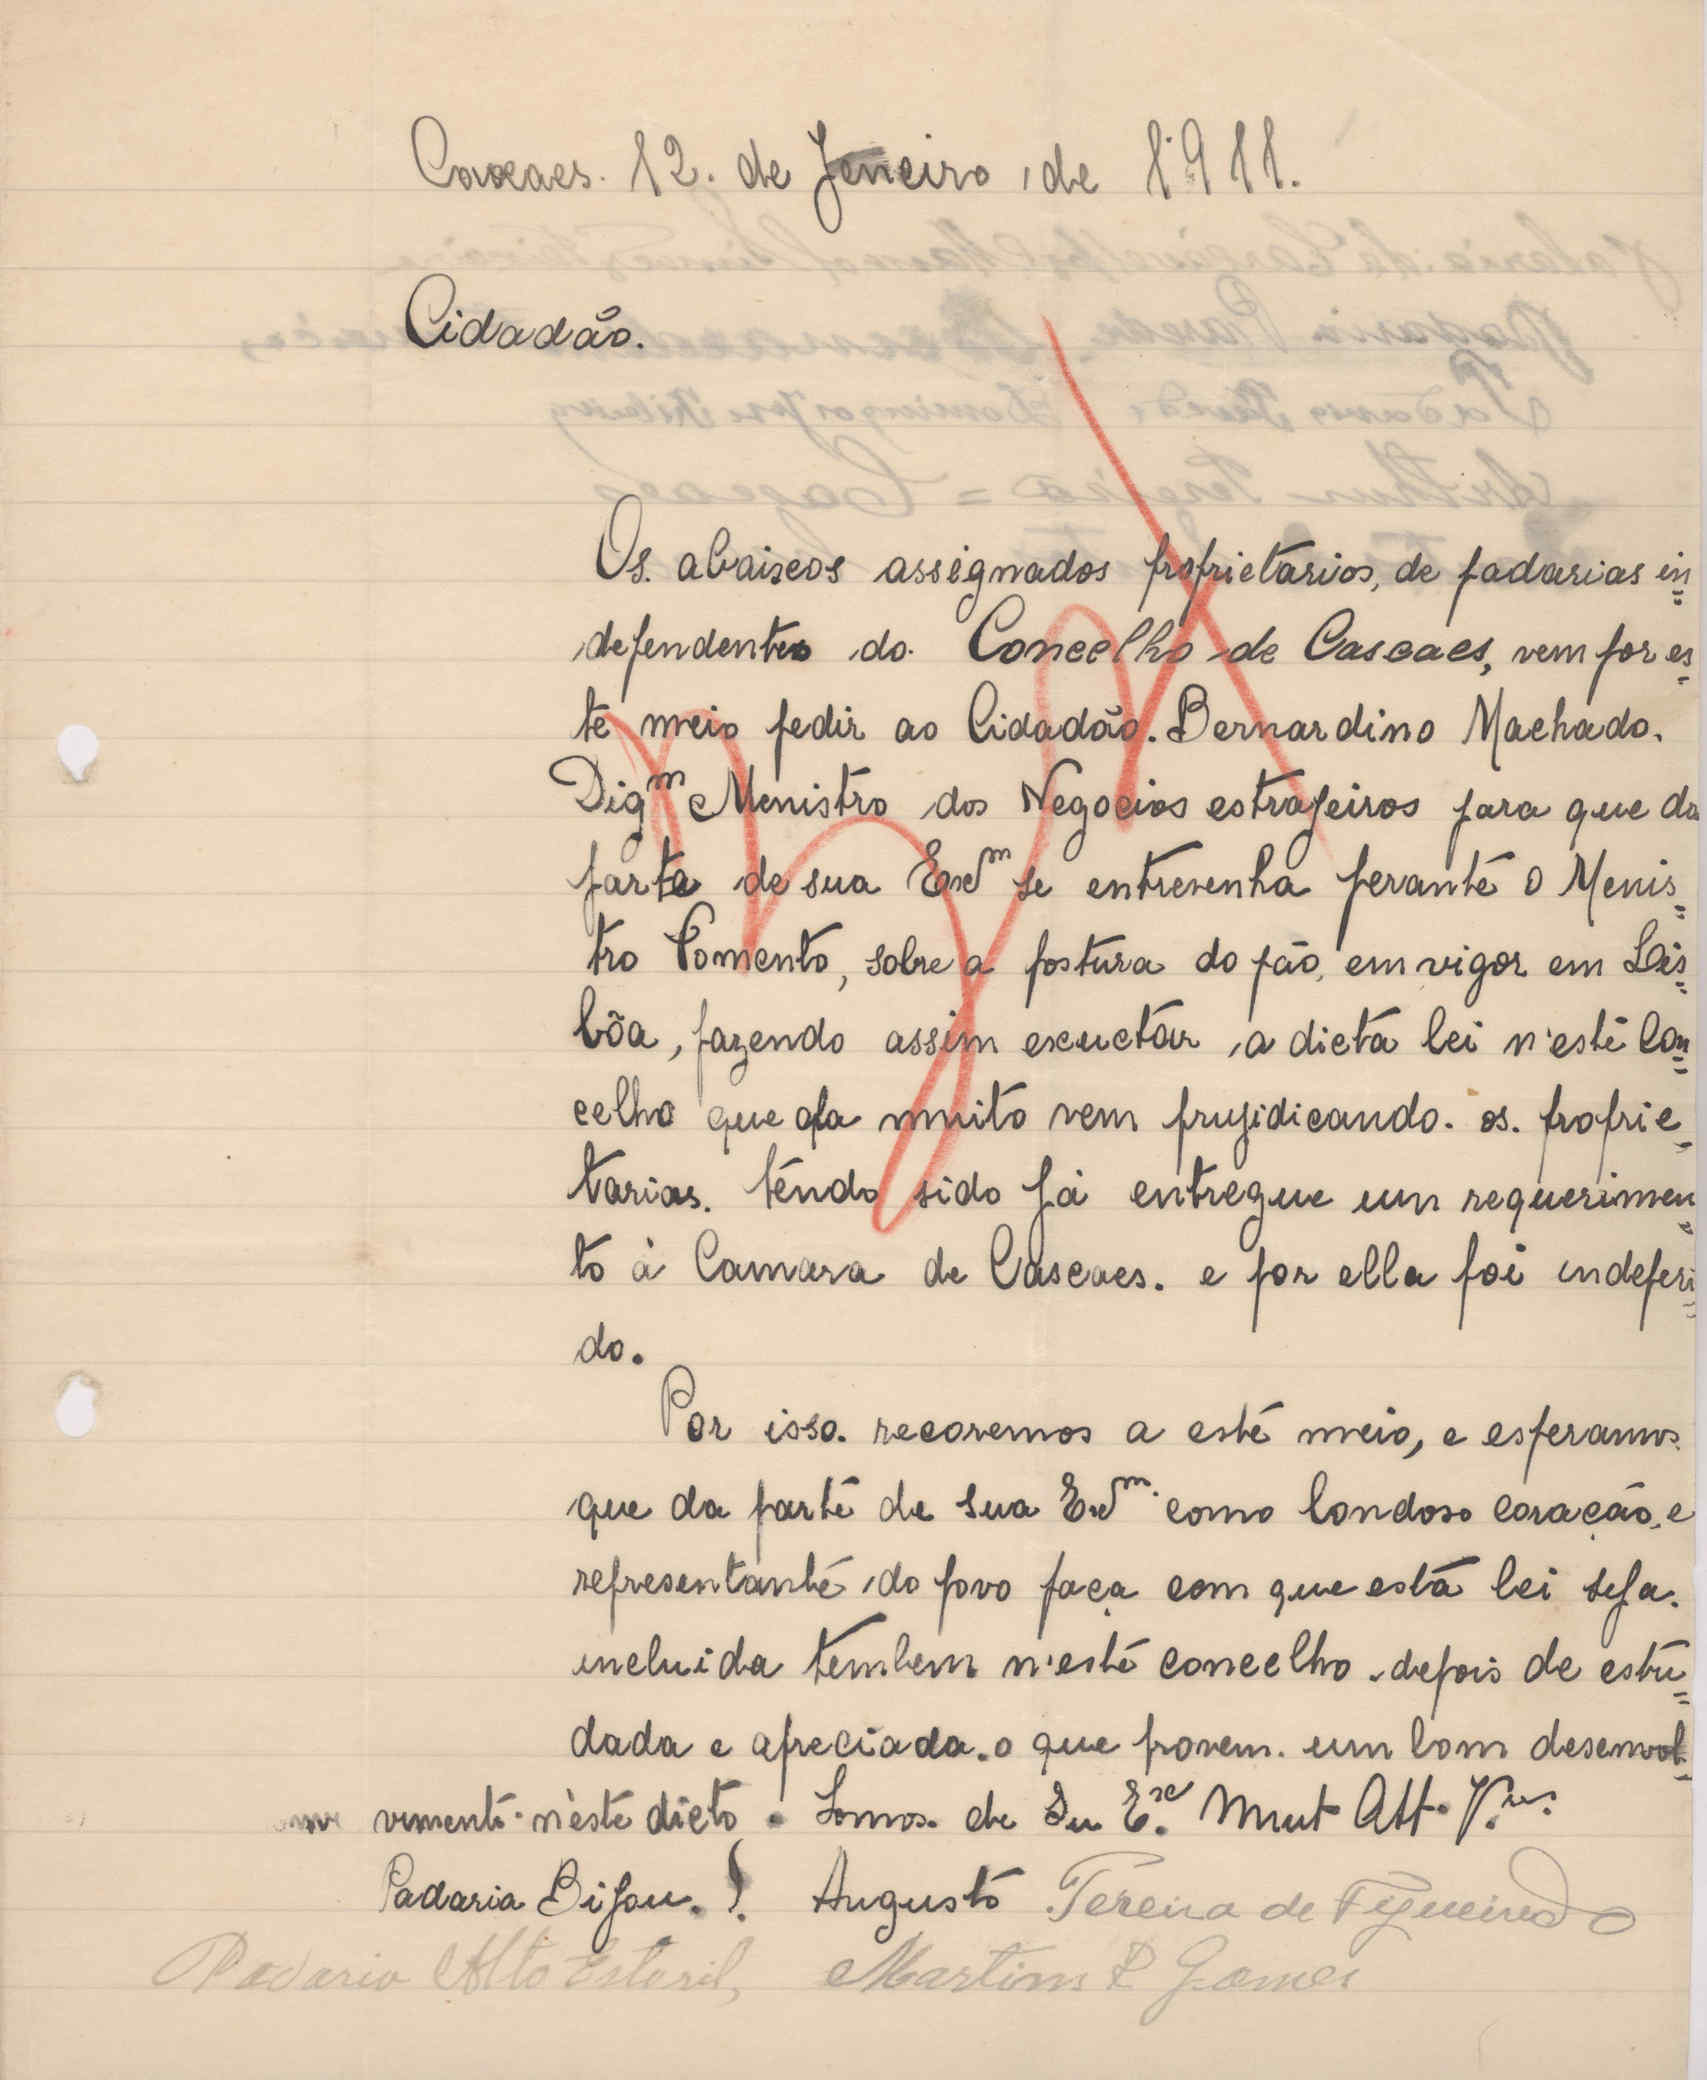 Cascaes. 12. de Jeneiro, de 1911.
Cidadão.
Os. abaixos assignados proprietarios, de padarias in=
dependentes do. Concelho de Cascaes, vem por es=
te meio pedir ao Cidadão. Bernardino Machado.
Digm Menistro dos Negocios estrajeiros para que da
parte de sua Exm se entrevenha perante o Menis=
tro Fomento, sobre a postura do pão, em vigor em Lis=
bôa, fazendo assim excuctar, a dicta lei n'este Con=
celho que a muito vem prujidicando. os. proprie=
tarias. tendo sido já entregue um requerimen=
to à Camara de Cascaes. e por ella foi indeferi=
do.
Por isso. recoremos a este meio, e esperamos.
que da parte de sua Exm. como bondoso coração, e
representante do povo faça com que esta lei seja.
incluida tembem n'este concelho. depois de estu=
dada e apreciada. o que provem. um bom desenvol=
vimento. n'este dicto. Somos. de Su Exc. Mut Att. V.res
Padaria Bijou. ! Augusto Pereira de Figueiredo
Padaria Alto Estoril, Martins & Gomes